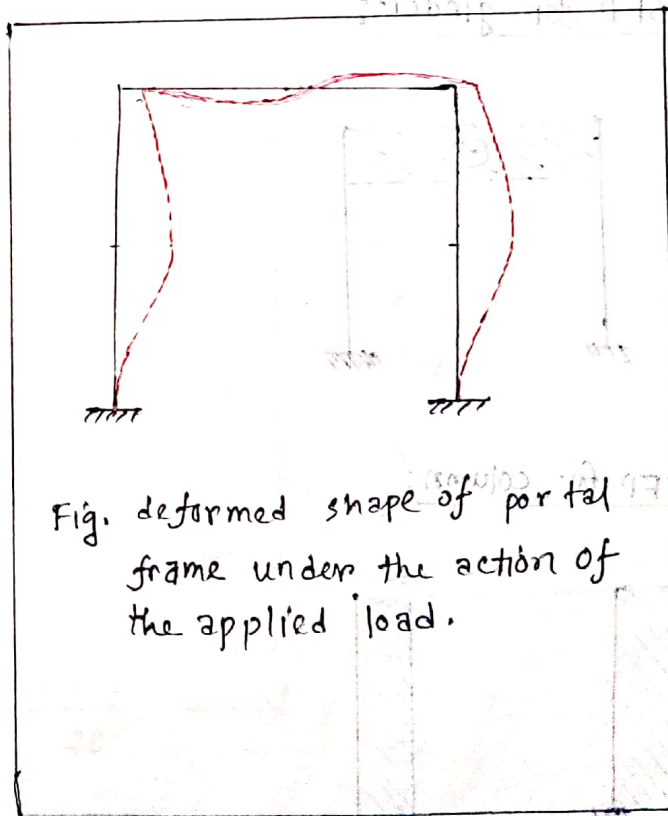 Fig. deformed shape of portal
frame under the action of
the applied load.